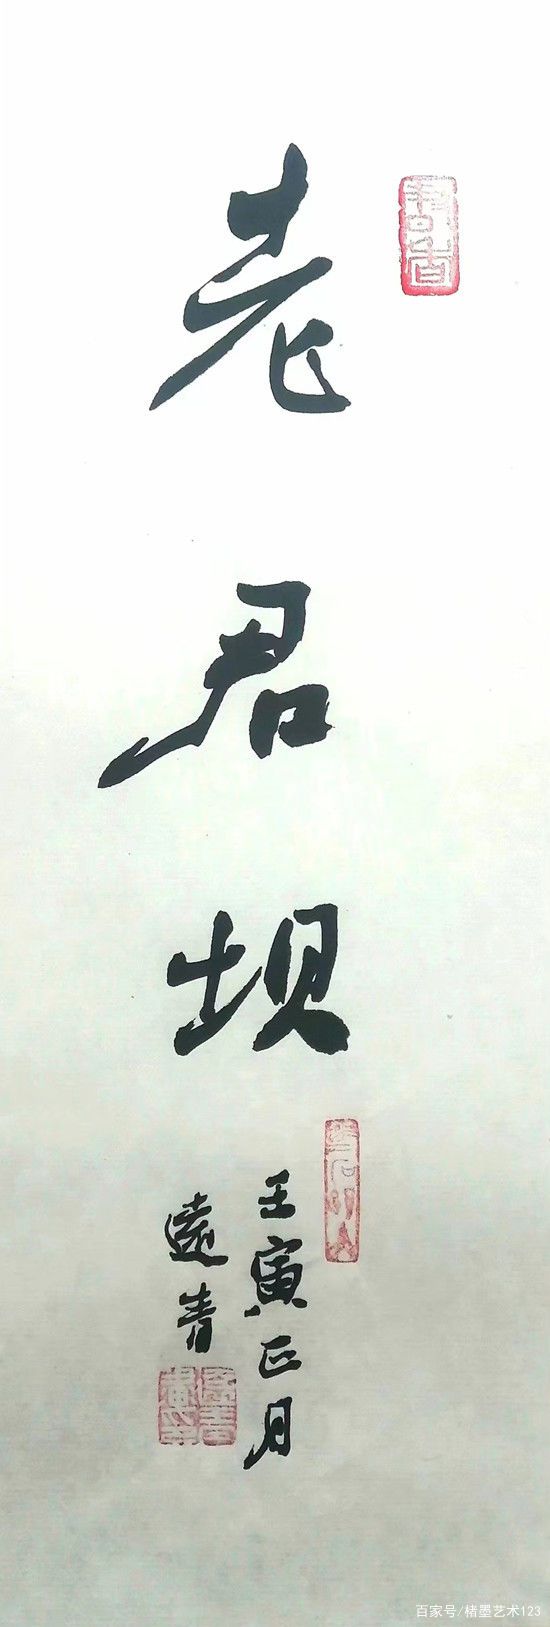 老君坝
壬寅正月
遠青
百家号/楮墨艺术123